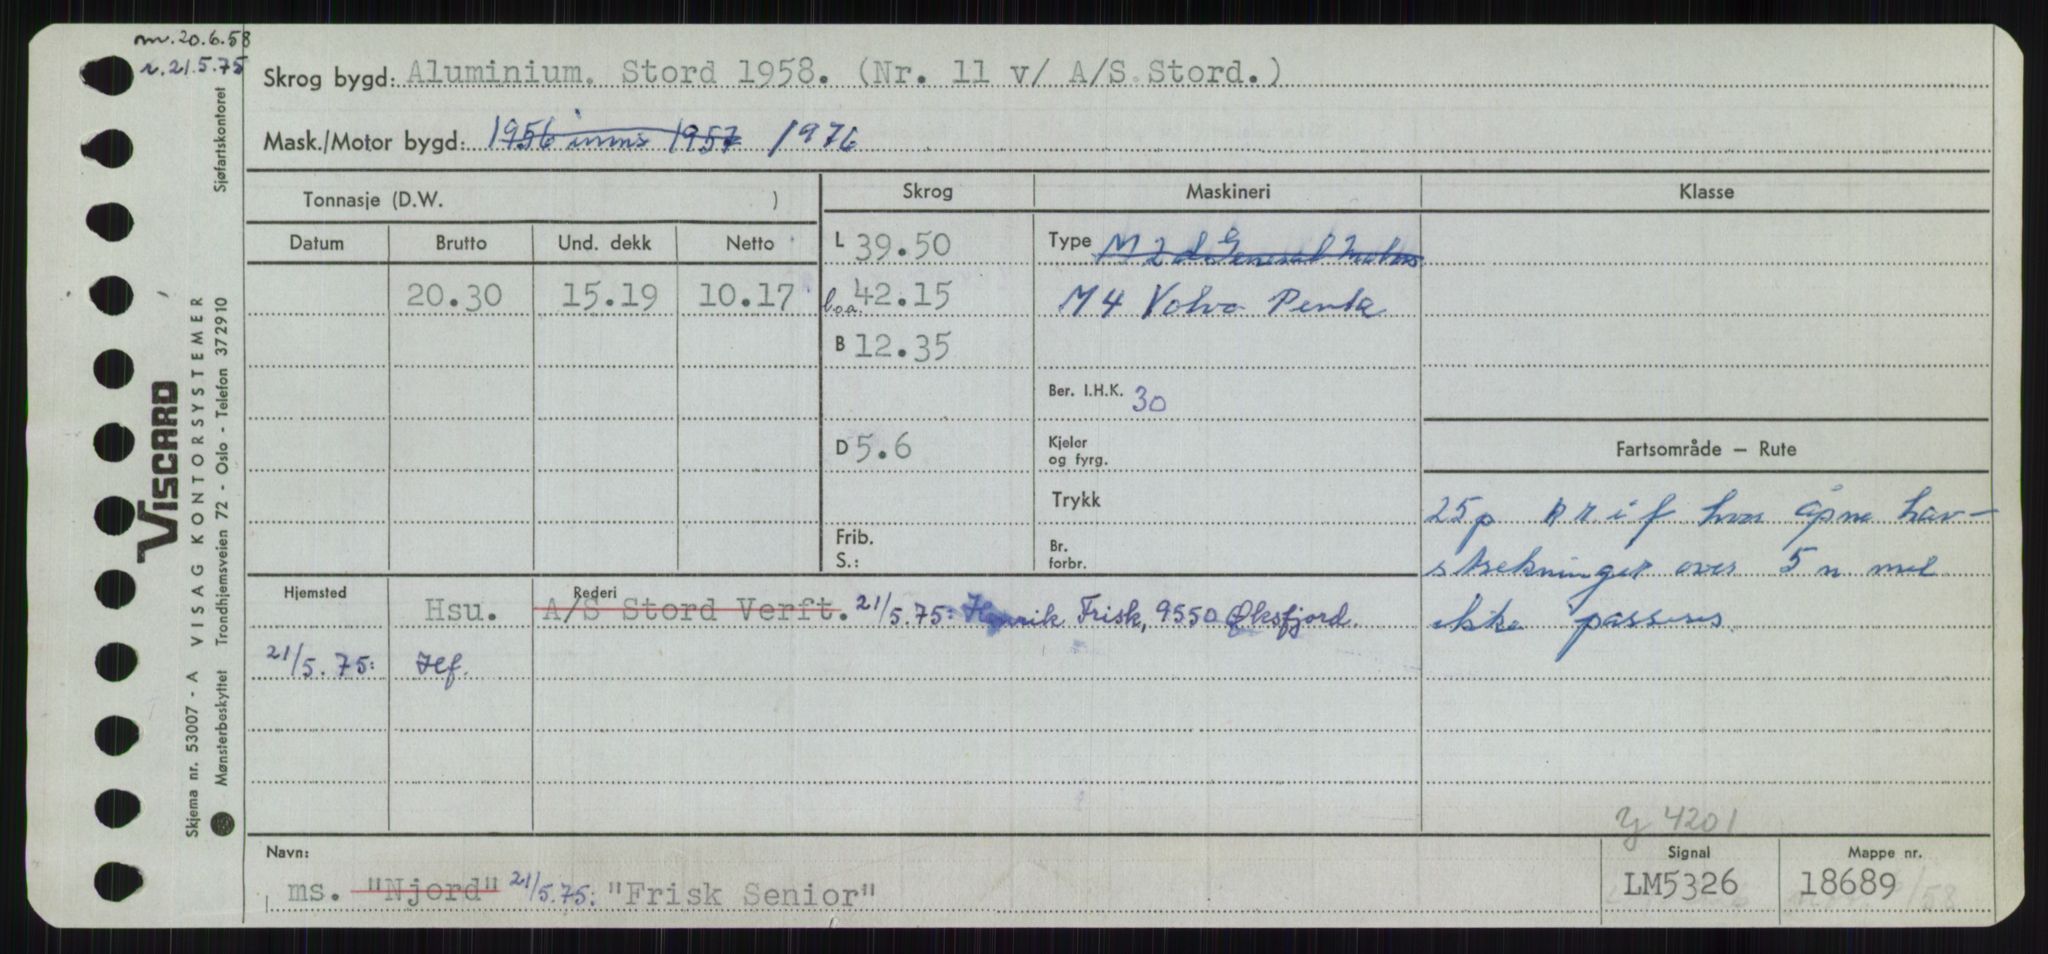 m. 20.6.58
r. 21.5.75
Skrog bygd: Aluminium. Stord 1958. (Nr. 11 v/ A/S Stord.)
Mask./Motor bygd: 1956 inns 1957 1976
Tonnasje (D.W. )
Skrog
Maskineri
Klasse
Datum Brutto Und. dekk Netto
20.30 15.19 10.17
L 39.50
b.o.a. 42.15
B 12.35
D 5.6
Frib.
S.:
Type M 2 General Motors
M 4 Volvo Penta
Ber. I.H.K. 30
Kjeler
og fyrg.
Trykk
Br.
forbr.
Fartsområde – Rute
25 p i f hvor åpne hav-
strekninger over 5 n mil
ikke passeres.
Hjemsted Rederi
Hsu. A/S Stord Verft. 21/5.75: Henrik Frisk, 9550 Øksfjord.
21/5.75: Hf.
y 4201
Navn: Signal Mappe nr.
ms. "Njord" 21/5.75: "Frisk Senior" LM5326 18689
/58
VISCARD
Skjema nr. 53007 - A VISAG KONTORSYSTEMER
Mønsterbeskyttet Trondhjemsveien 72 - Oslo - Telefon 372910
Sjøfartskontoret